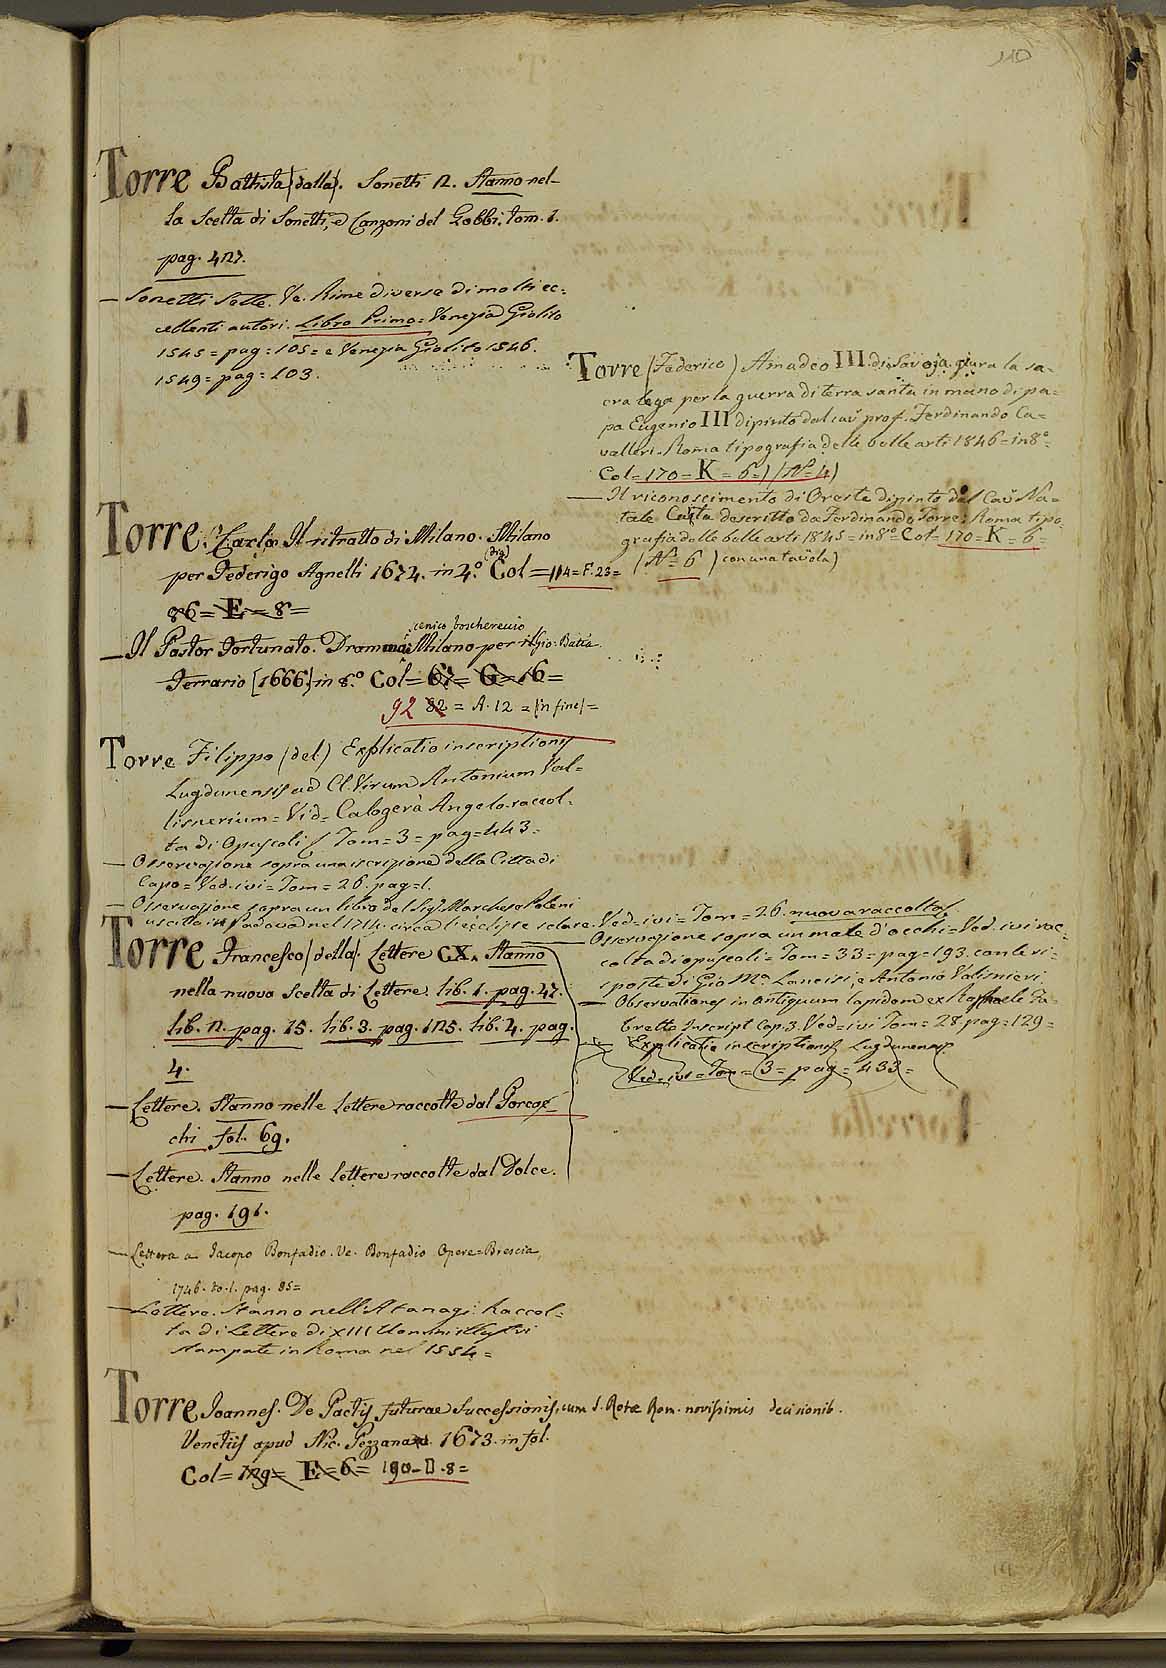 110
Torre Battista (dalla). Sonetti 12. Stanno nel-
la Scelta di Sonetti, e Canzoni del Gobbi. tom. 1.
pag. 427.
— Sonetti Sette. Ve. Rime diverse di molti ec=
cellenti autori. Libro Primo = Venezia Giolito
1545 = pag = 105 = e Venezia Giolito 1546.
1549 = pag = 103.
Torre Carlo Il ritratto di Milano. Milano
per Federigo Agnelli 1674. in 4.º Col = 114 = F. 23 =
86 = E = 8 =
cenico boschereccio
— Il Pastor Fortunato. Dramma Milano per il Gio: Batta
Ferrario [1666.] in 8.º Col = 67 = G = 16 =
92 82 = A. 12 = (in fine) =
Torre Filippo (del) Explicatio inscriptionis
Lugdunensis ad Cl. Virum Antonium Val=
lisnerium = Vid = Calogerà Angelo raccol=
ta di Opuscoli Tom = 3 = pag = 443 =
— Osservazione sopra una iscrizione della Città di
Capo = Ved. ivi = Tom = 26. pag = 1.
— Osservazione sopra un libro del Sigr Marchese Poleni
uscito in Padova nel 1714. circa l'eclisse solare. Ved = ivi = Tom = 26. nuova raccolta
— Osservazione sopra un male d'occhi = Ved. ivi rac=
colta di opuscoli = Tom = 33 = pag = 193. con le ri=
sposte di Gio Mª Lancisi, e Antonio Valisnieri
— Observationes in antiquum lapidem ex Raphaele Fa=
bretto Inscript Cap. 3. Ved = ivi Tom = 28 pag = 129 =
— Explicatio inscriptionis Lugdunensis
Ved = ivi = Tom = 3 = pag = 433 =
Torre Francesco (della). Lettere CX. Stanno
nella nuova Scelta di Lettere. lib. 1. pag. 47.
lib. 2. pag. 15. lib. 3. pag. 125. lib. 4. pag.
4.
— Lettere. Stanno nelle lettere raccolte dal Porcac
chi fol. 69.
— Lettere. Stanno nelle lettere raccolte dal Dolce.
pag. 191.
— Lettera a Jacopo Bonfadio. Ve. Bonfadio Opere = Brescia
1746. to. 1. pag. 85 =
— Lettere. Stanno nell'Atanagi Raccol=
ta di Lettere di XIII Uomini illustri
stampate in Roma nel 1554 =
Torre Joannes. De Pactis futurae Successionis, cum S. Rotae Rom. novissimis decisionib.
Venetiis apud Nic. Pezzana 1673. in fol.
Col = 129 = E = 6 = 190 - D. 8 =
Torre (Federico) Amadeo III. di Savoja giura la sa=
cra lega per la guerra di terra santa in mano di pa=
pa Eugenio III dipinto dal cav prof. Ferdinando Ca=
valleri. Roma tipografia delle belle arti 1846 = in 8º =
Col = 170 = K = 6 = ) (Nº = 4)
— Il riconoscimento di Oreste dipinto dal Cav Na=
tale Carta descritto da Ferdinando Torre: Roma tipo
grafia delle belle arti 1845 = in 8º = Col = 170 = K = 6 =
(Nº = 6 ) con una tavola)